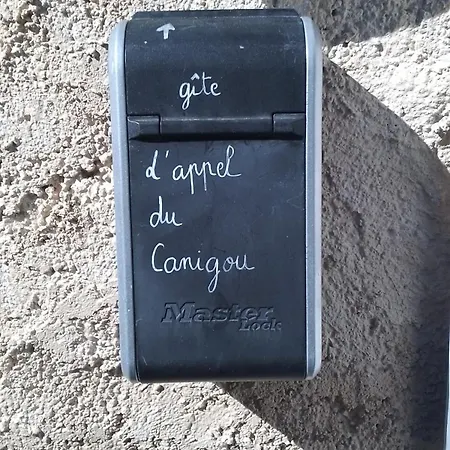 ↑
gîte
d'appel
du
Canigou
Master
Lock